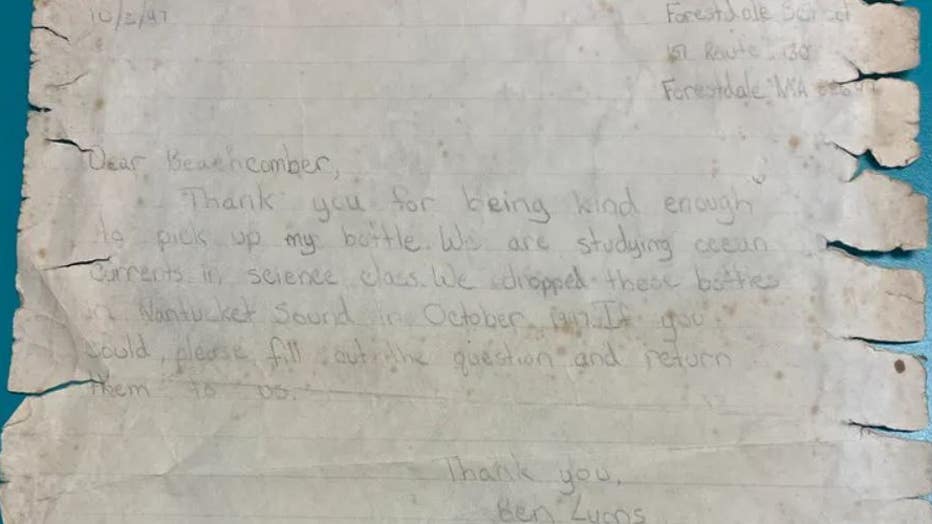 10/2/97
Forestdale School
151 Route 130
Forestdale MA 02644
Dear Beachcomber,
Thank you for being kind enough
to pick up my bottle. We are studying ocean
currents in science class. We dropped these bottles
in Nantucket Sound in October 1997. If you
could, please fill out the question and return
them to us.
Thank you,
Ben Lyons